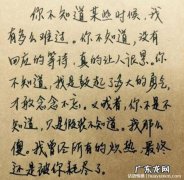 你不知道某些时候,我
有多么难过。你不知道,没有
回应的等待,真的让人很累。你
不知道,我是鼓起了多大的勇气,
才敢念念不忘。又或者,你不是不
知道,只是假装不知道。我那么
傻。我曾经所有的炽热,最终
还是被你耗尽了。